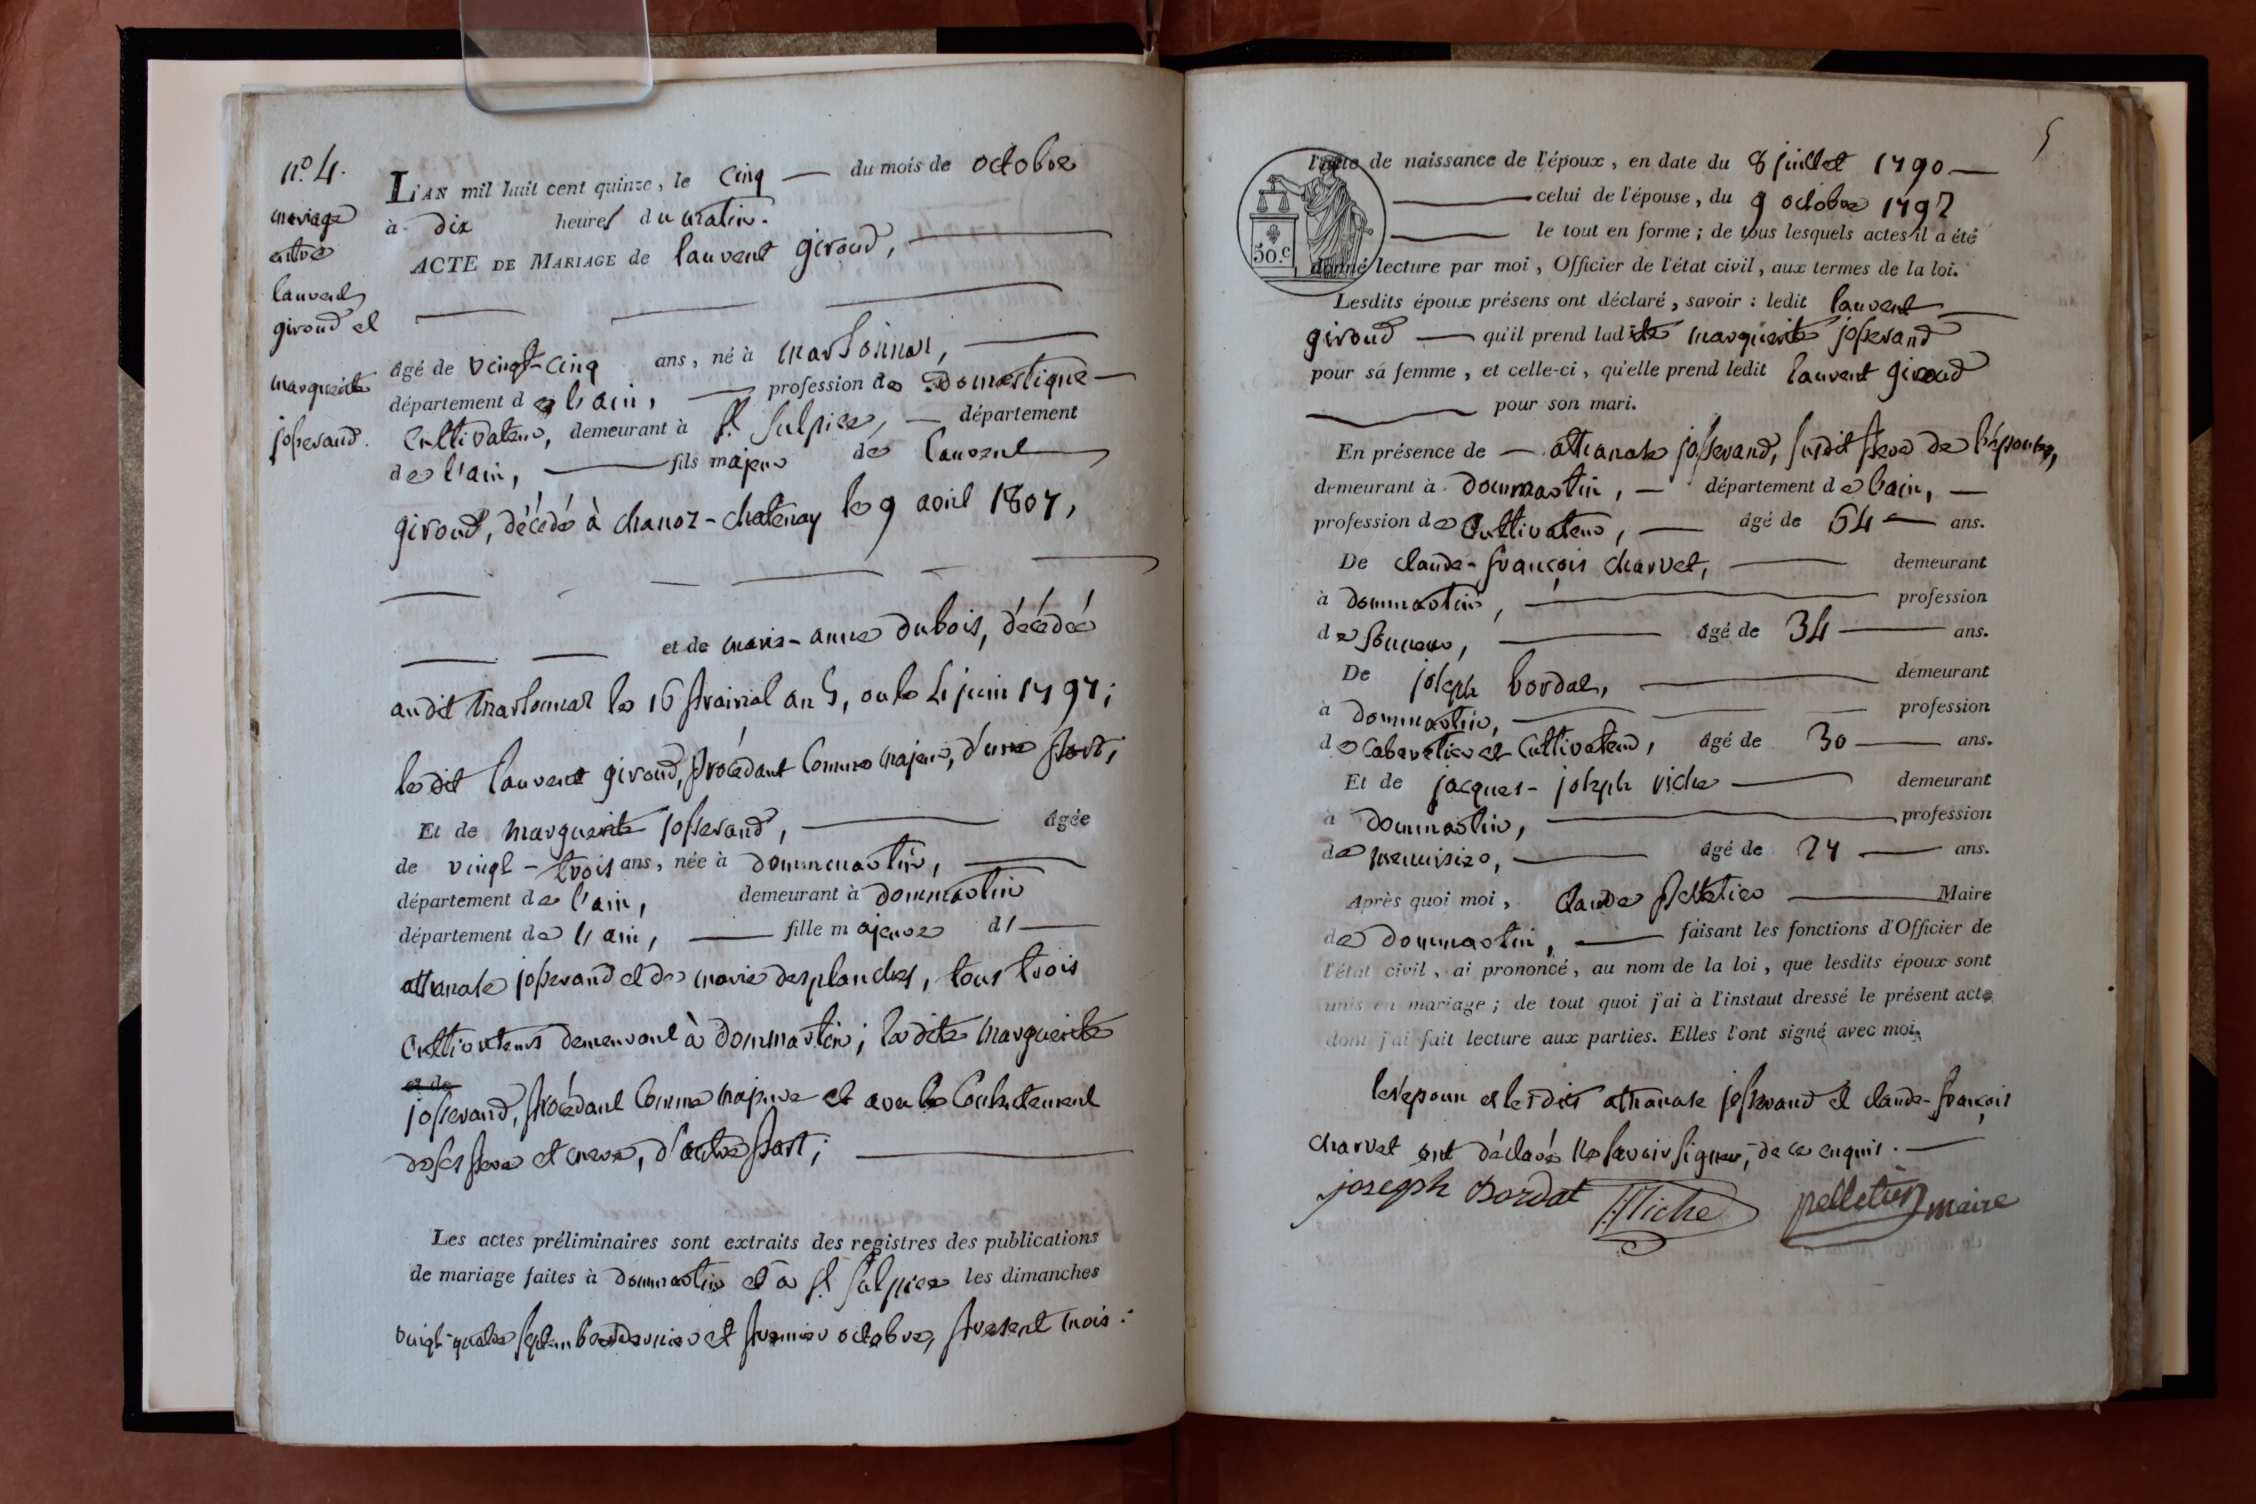 n.° 4.
mariage
entre
laurent
giroud et
marguerite
josserand.
L'AN mil huit cent quinze, le cinq du mois de octobre
à dix heures du matin.
ACTE DE MARIAGE de laurent giroud,
âgé de vingt-cinq ans, né à marsonnas,
département de l'ain, profession de domestique
cultivateur, demeurant à st. sulpice, département
de l'ain, fils majeur de laurent
giroud, décédé à chanoz-chatenay le 9 avril 1807,
et de marie-anne dubois, décédée
audit marsonnas le 16 prairial an 5, ou le 4 juin 1797;
le dit laurent giroud, procédant comme majeur, d'une part;
Et de marguerite josserand, âgée
de vingt-trois ans, née à dommartin,
département de l'ain, demeurant à dommartin
département de l'ain, fille majeure d'
athanase josserand et de marie desplanches, tous trois
cultivateurs demeurant à dommartin; la dite marguerite
et de
josserand, procédant comme majeure et avec le consentement
de ses pere et mere, d'autre part;
Les actes préliminaires sont extraits des registres des publications
de mariage faites à dommartin et à st. sulpice les dimanches
vingt-quatre septembre dernier et premier octobre, present mois:
5
l'acte de naissance de l'époux, en date du 8 juillet 1790
celui de l'épouse, du 9 octobre 1792
le tout en forme; de tous lesquels actes il a été
50.c donné lecture par moi, Officier de l'état civil, aux termes de la loi.
Lesdits époux présens ont déclaré, savoir: ledit laurent
giroud qu'il prend ladite marguerite josserand
pour sa femme, et celle-ci, qu'elle prend ledit laurent giroud
pour son mari.
En présence de athanase josserand, susdit pere de l'épouse,
demeurant à dommartin, département de l'ain,
profession de cultivateur, âgé de 64 ans.
De claude-françois charvet, demeurant
à dommartin, profession
de sonneur, âgé de 34 ans.
De joseph bordat, demeurant
à dommartin, profession
de cabaretier et cultivateur, âgé de 30 ans.
Et de jacques-joseph viche demeurant
à dommartin, profession
de menuisier, âgé de 27 ans.
Après quoi moi, claude pelletier Maire
de dommartin, faisant les fonctions d'Officier de
l'état civil, ai prononcé, au nom de la loi, que lesdits époux sont
unis en mariage; de tout quoi j'ai à l'instant dressé le présent acte
dont j'ai fait lecture aux parties. Elles l'ont signé avec moi.
les époux et les dits athanase josserand et claude-françois
charvet ont déclaré ne savoir signer, de ce enquis.
joseph Bordat Viche pelletier maire